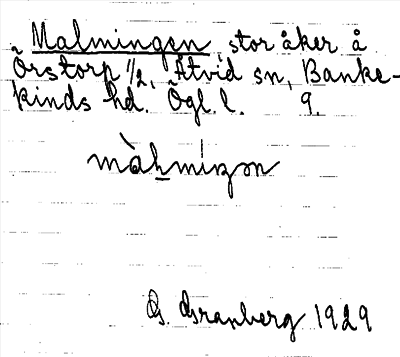 Malmingen, stor åker å
Örstorp 1/2, Åtvid sn, Banke-
kinds hd. Ögl. l. 9.
màlmiŋən
G. Granberg 1929